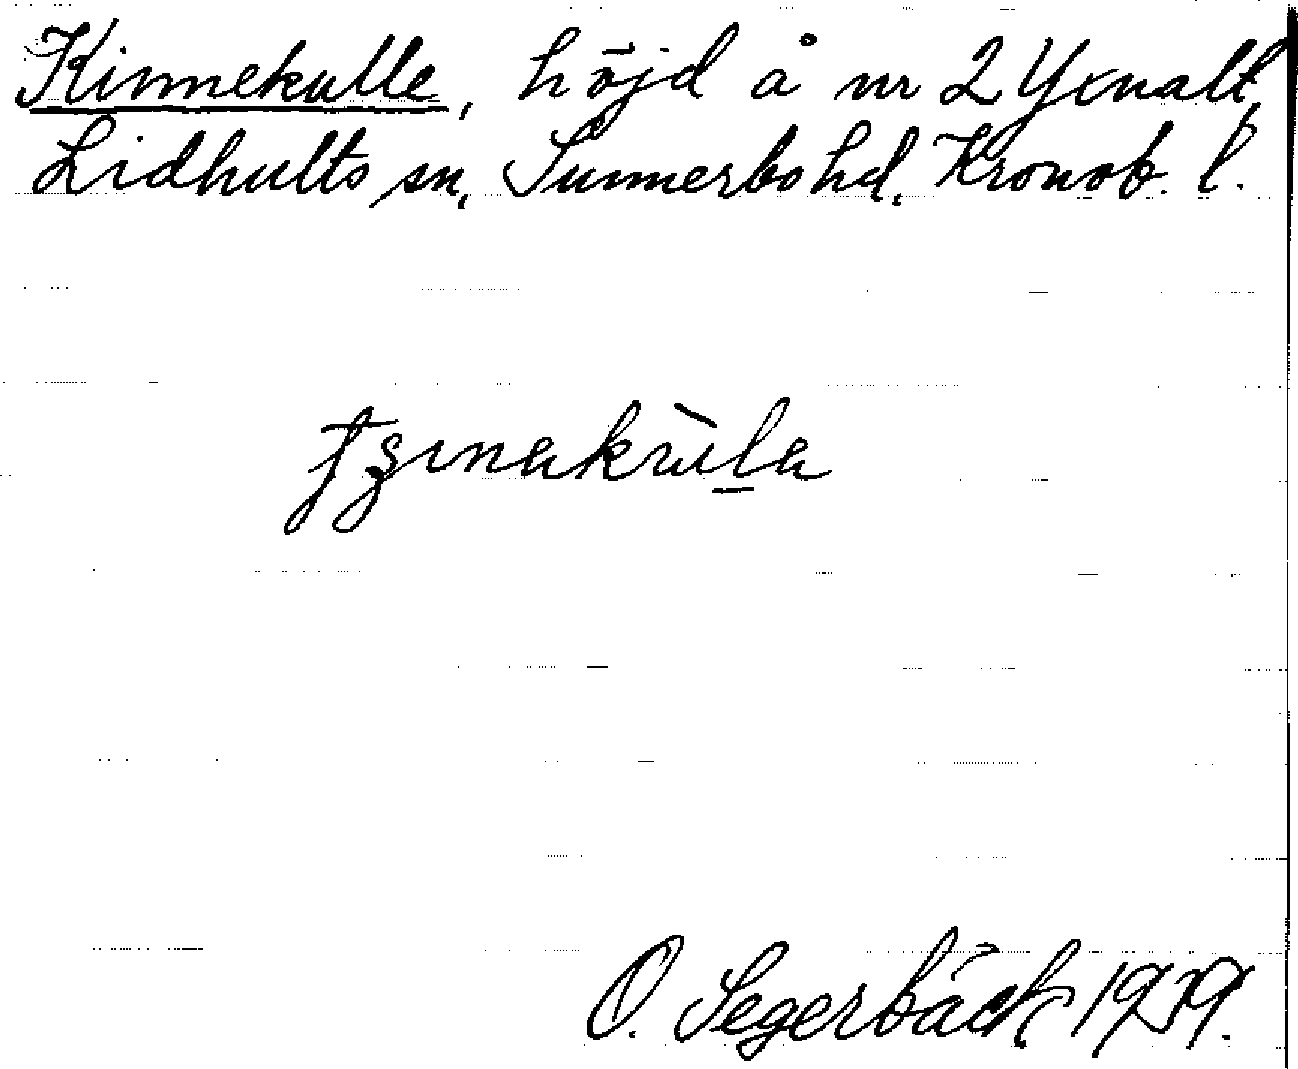 Kinnekulle, höjd å nr 2 Yxnalt,
Lidhults sn, Sunnerbo hd, Kronob. l.
O. Segerbäck 1929.